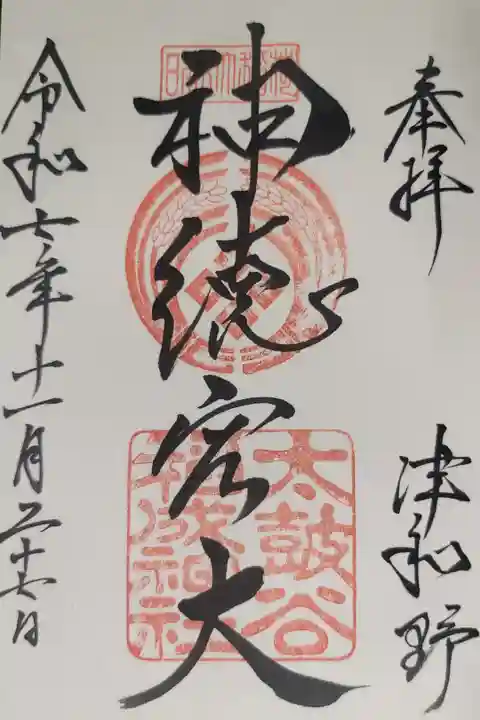 奉拝
津和野
神徳宏大
太鼓谷
稲成神社
令和七年十一月二十七日